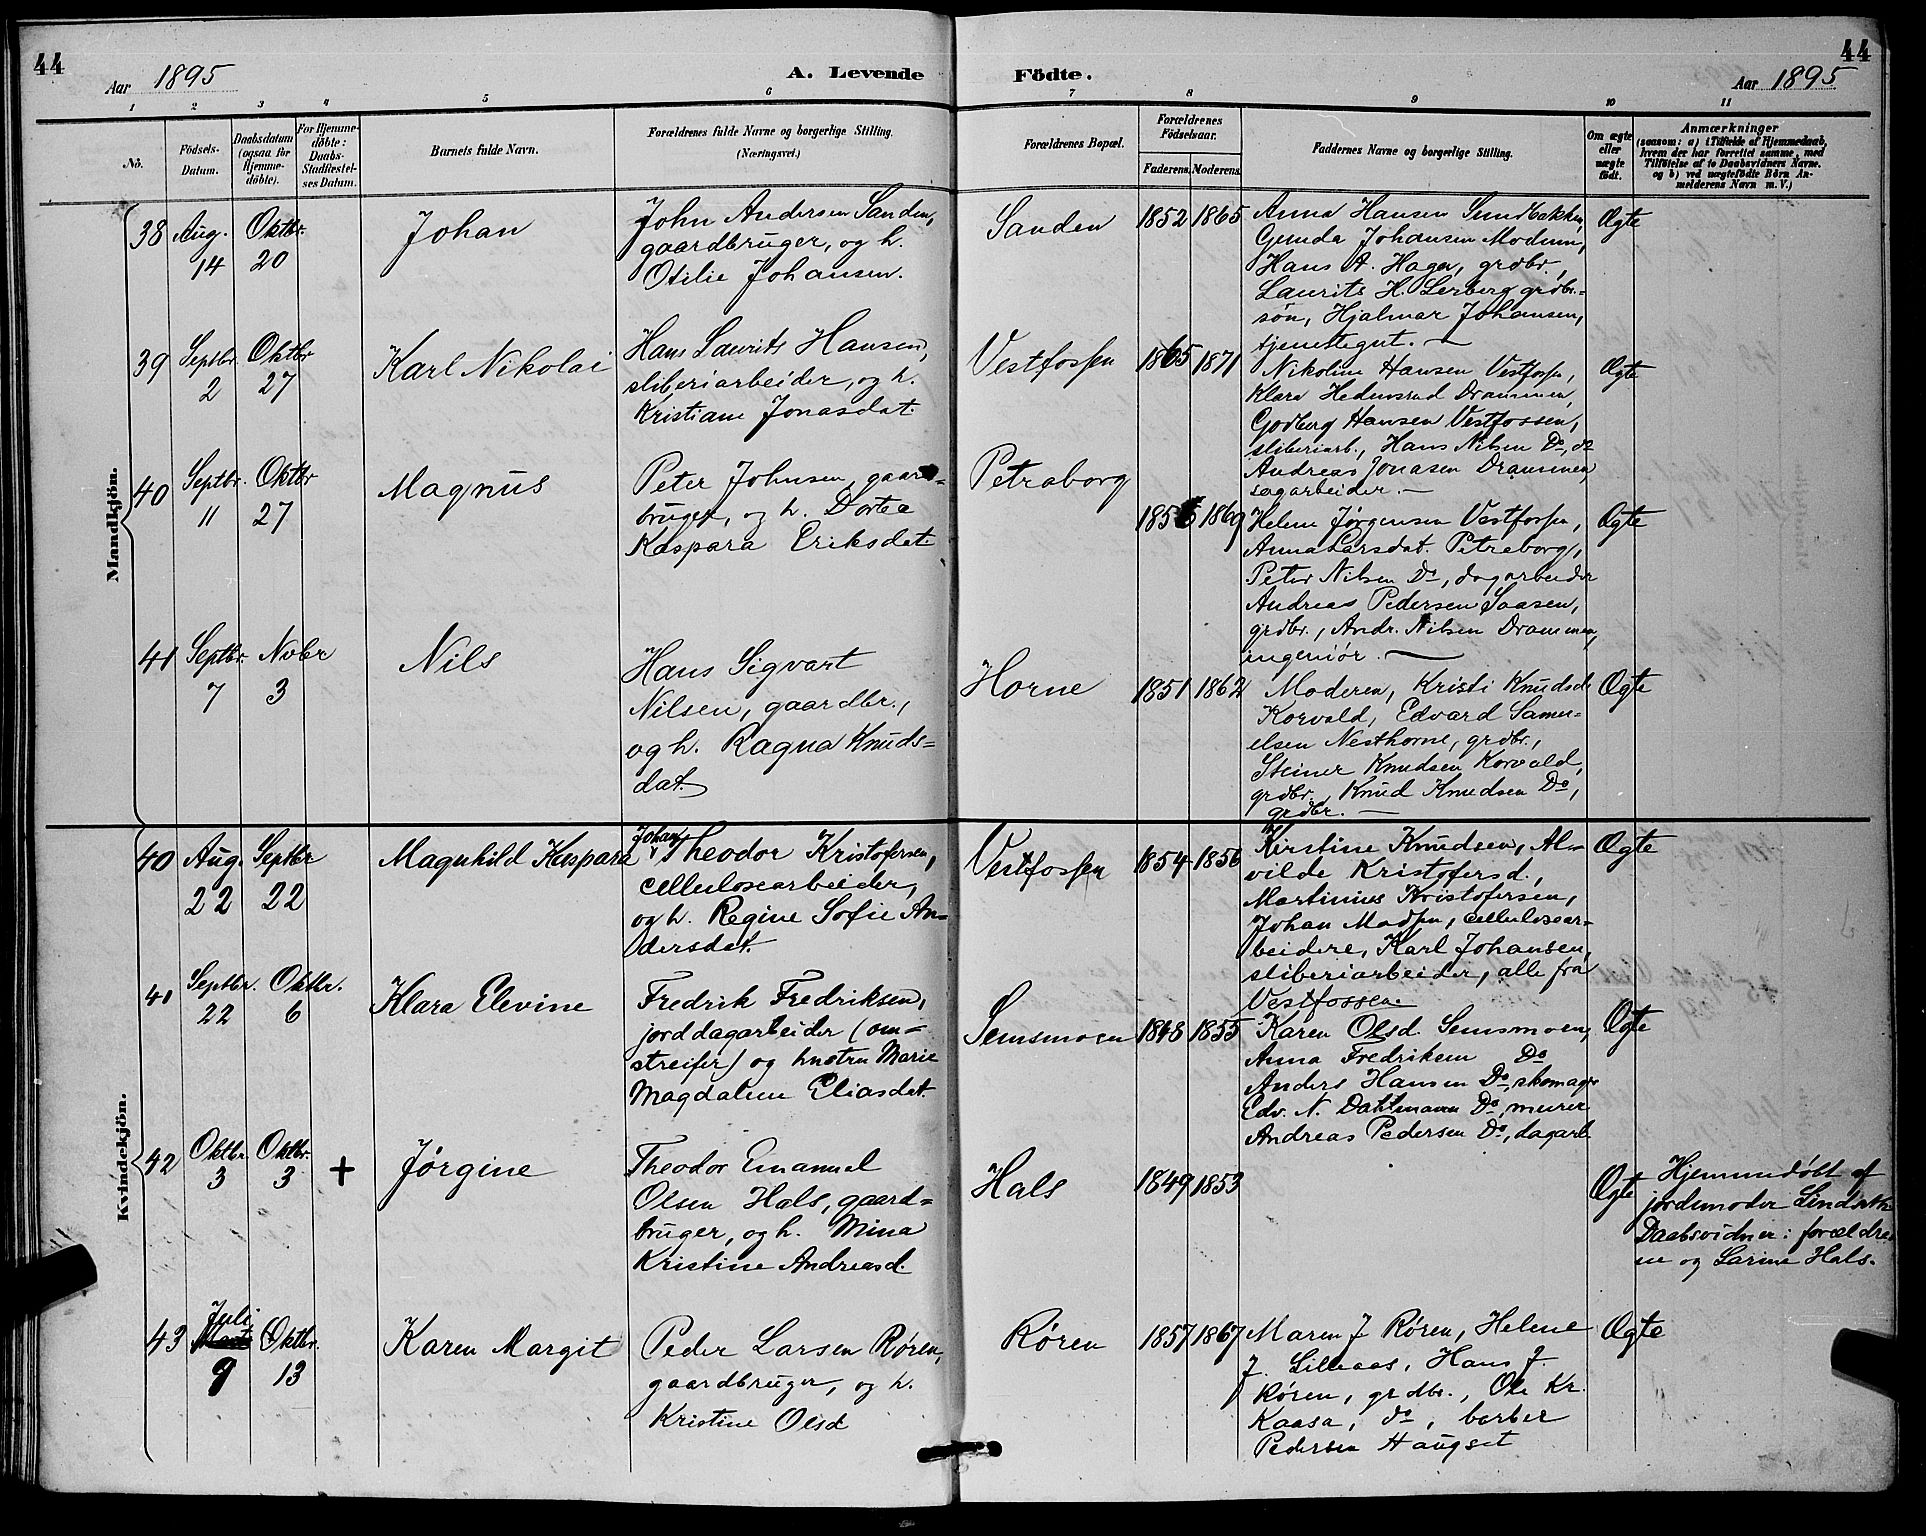 44
Aar 1895
A. Levende
Födte.
Aar 1895
44
1 2 3 4 5 6 7 8 9 10 11
No.
Födsels-
Datum.
Daabsdatum
(ogsaa for
Hjemme-
döbte).
For Hjemme-
döbte:
Daabs-
Stadfæstel-
ses Datum.
Barnets fulde Navn.
Forældrenes fulde Navne og borgerlige Stilling.
(Næringsvei.)
Forældrenes Bopæl.
Forældrenes
Födselsaar.
Faderens. Moderens.
Faddernes Navne og borgerlige Stilling.
Om ægte
eller
uægte
födt.
Anmærkninger
(saasom: a) i Tilfælde af Hjemmedaab,
hvem der har forrettet samme, med
Tilföielse af to Daabsvidners Navne.
og b) ved uægtefödte Börn An-
melderens Navn m. V.)
Mandkjön.
38
Aug.
14
Oktbr.
20
Johan
John Andersen Sanden,
gaardbruger, og h.
Otilie Johansen.
Sanden
1852 1865
Anna Hansen Sundbakken,
Gunda Johansen Modum,
Hans A. Hagen, grdbr.,
Laurits H. Lerberg grdbr.=
søn, Hjalmar Johansen,
tjenestegut. —
Ægte
39
Septbr.
2
Oktbr
27
Karl Nikolai
Hans Laurits Hansen,
sliberiarbeider, og h.
Kristiane Jonasdat.
Vestfossen
1865 1871
Nikoline Hansen Vestfossen,
Klara Hedenstad Drammen,
Godberg Hansen Vestfossen,
sliberiarb., Hans Nilsen Do, do
Andreas Jonasen Drammen,
sagarbeider. —
Ægte
40
Septbr.
11
Oktbr
27
Magnus
Peter Johnsen, gaard=
bruger, og h. Dortea
Kaspara Eriksdat.
Petraborg
1869
Helene Jørgensen Vestfossen,
Anna Larsdat. Petraborg,
Peter Nilsen Do, dagarbeider
Andreas Pedersen Saasen,
grdbr., Andr. Nilsen Drammen,
ingeniør. —
Ægte
41
Septbr.
7
Nvbr
3
Nils
Hans Sigvart
Nilsen, gaardbr.,
og h. Ragna Knuds=
dat.
Horne
1851 1862
Moderen, Kristi Knudsd.
Korvald, Edvard Samu=
elsen Nesthorne, grdbr.,
Steiner Knudsen Korvald,
grdbr., Knud Knudsen Do,
grdbr. —
Ægte
Kvindekjön.
40
Aug.
22
Septbr
22
Magnhild Kaspara
Johan
Theodor Kristofersen,
cellulosearbeider,
og h. Regine Sofie An=
dersdat.
Vestfossen
1854 1856
Kirstine Knudsen, Al=
vilde Kristofersd.,
Martinius Kristofersen,
Johan Madsen, cellulosear=
beidere, Karl Johansen,
sliberiarbeider, alle fra
Vestfossen.
Ægte
41
Septbr.
22
Oktbr.
6
Klara Elevine
Fredrik Fredriksen,
jorddagarbeider (om=
streifer) og hustru Marie
Magdalene Eliasdat.
Semsmoen
1848 1855
Karen Olsd. Semsmoen,
Anna Fredriksen Do
Anders Hansen Do, skomager
Edv. N. Dahlmann Do, murer
Andreas Pedersen Do, dagarb.
Ægte
42
Oktbr.
3
Oktbr.
3
+
Jørgine
Theodor Emanuel
Olsen Hals, gaard=
bruger, og h. Mina
Kristine Andreasd.
Hals
1849 1853
Ægte
Hjemmedøbt af
jordemoder
Daabsvidner: forældre
ne og Larine Hals.
43
Juli
9
Oktbr.
13
Karen Margit
Peder Larsen Røren,
gaardbruger, og h.
Kristine Olsd
Røren
1857 1867
Maren J. Røren, Helene
J. Lilleaas, Hans J.
Røren, grdbr., Ole Kr.
Kaasa, do, berber
Pedersen Haugset
Ægte